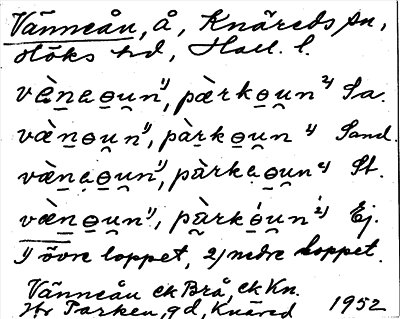 Vänneån, å, Knäreds sn,
Höks hd, Hall. l.
væ̀n̲ɵ̲u̯n¹⁾, pærkɵ̲u̯n²⁾ Sa.
væ̀n̲ɵ̲u̯n¹⁾, pàrkɵ̲u̯n²⁾ Sand.
væ̀n̲ɵ̲u̯n¹⁾, pàrkɵ̲u̯n²⁾ St.
væ̀n̲ɵ̲u̯n¹⁾, pàrkɵ̲u̯n²⁾ Ej.
1) övre loppet, 2) nedre loppet.
Vänneån ek Brå, ek Kn.
Hr Parken, gd, Knäred 1952